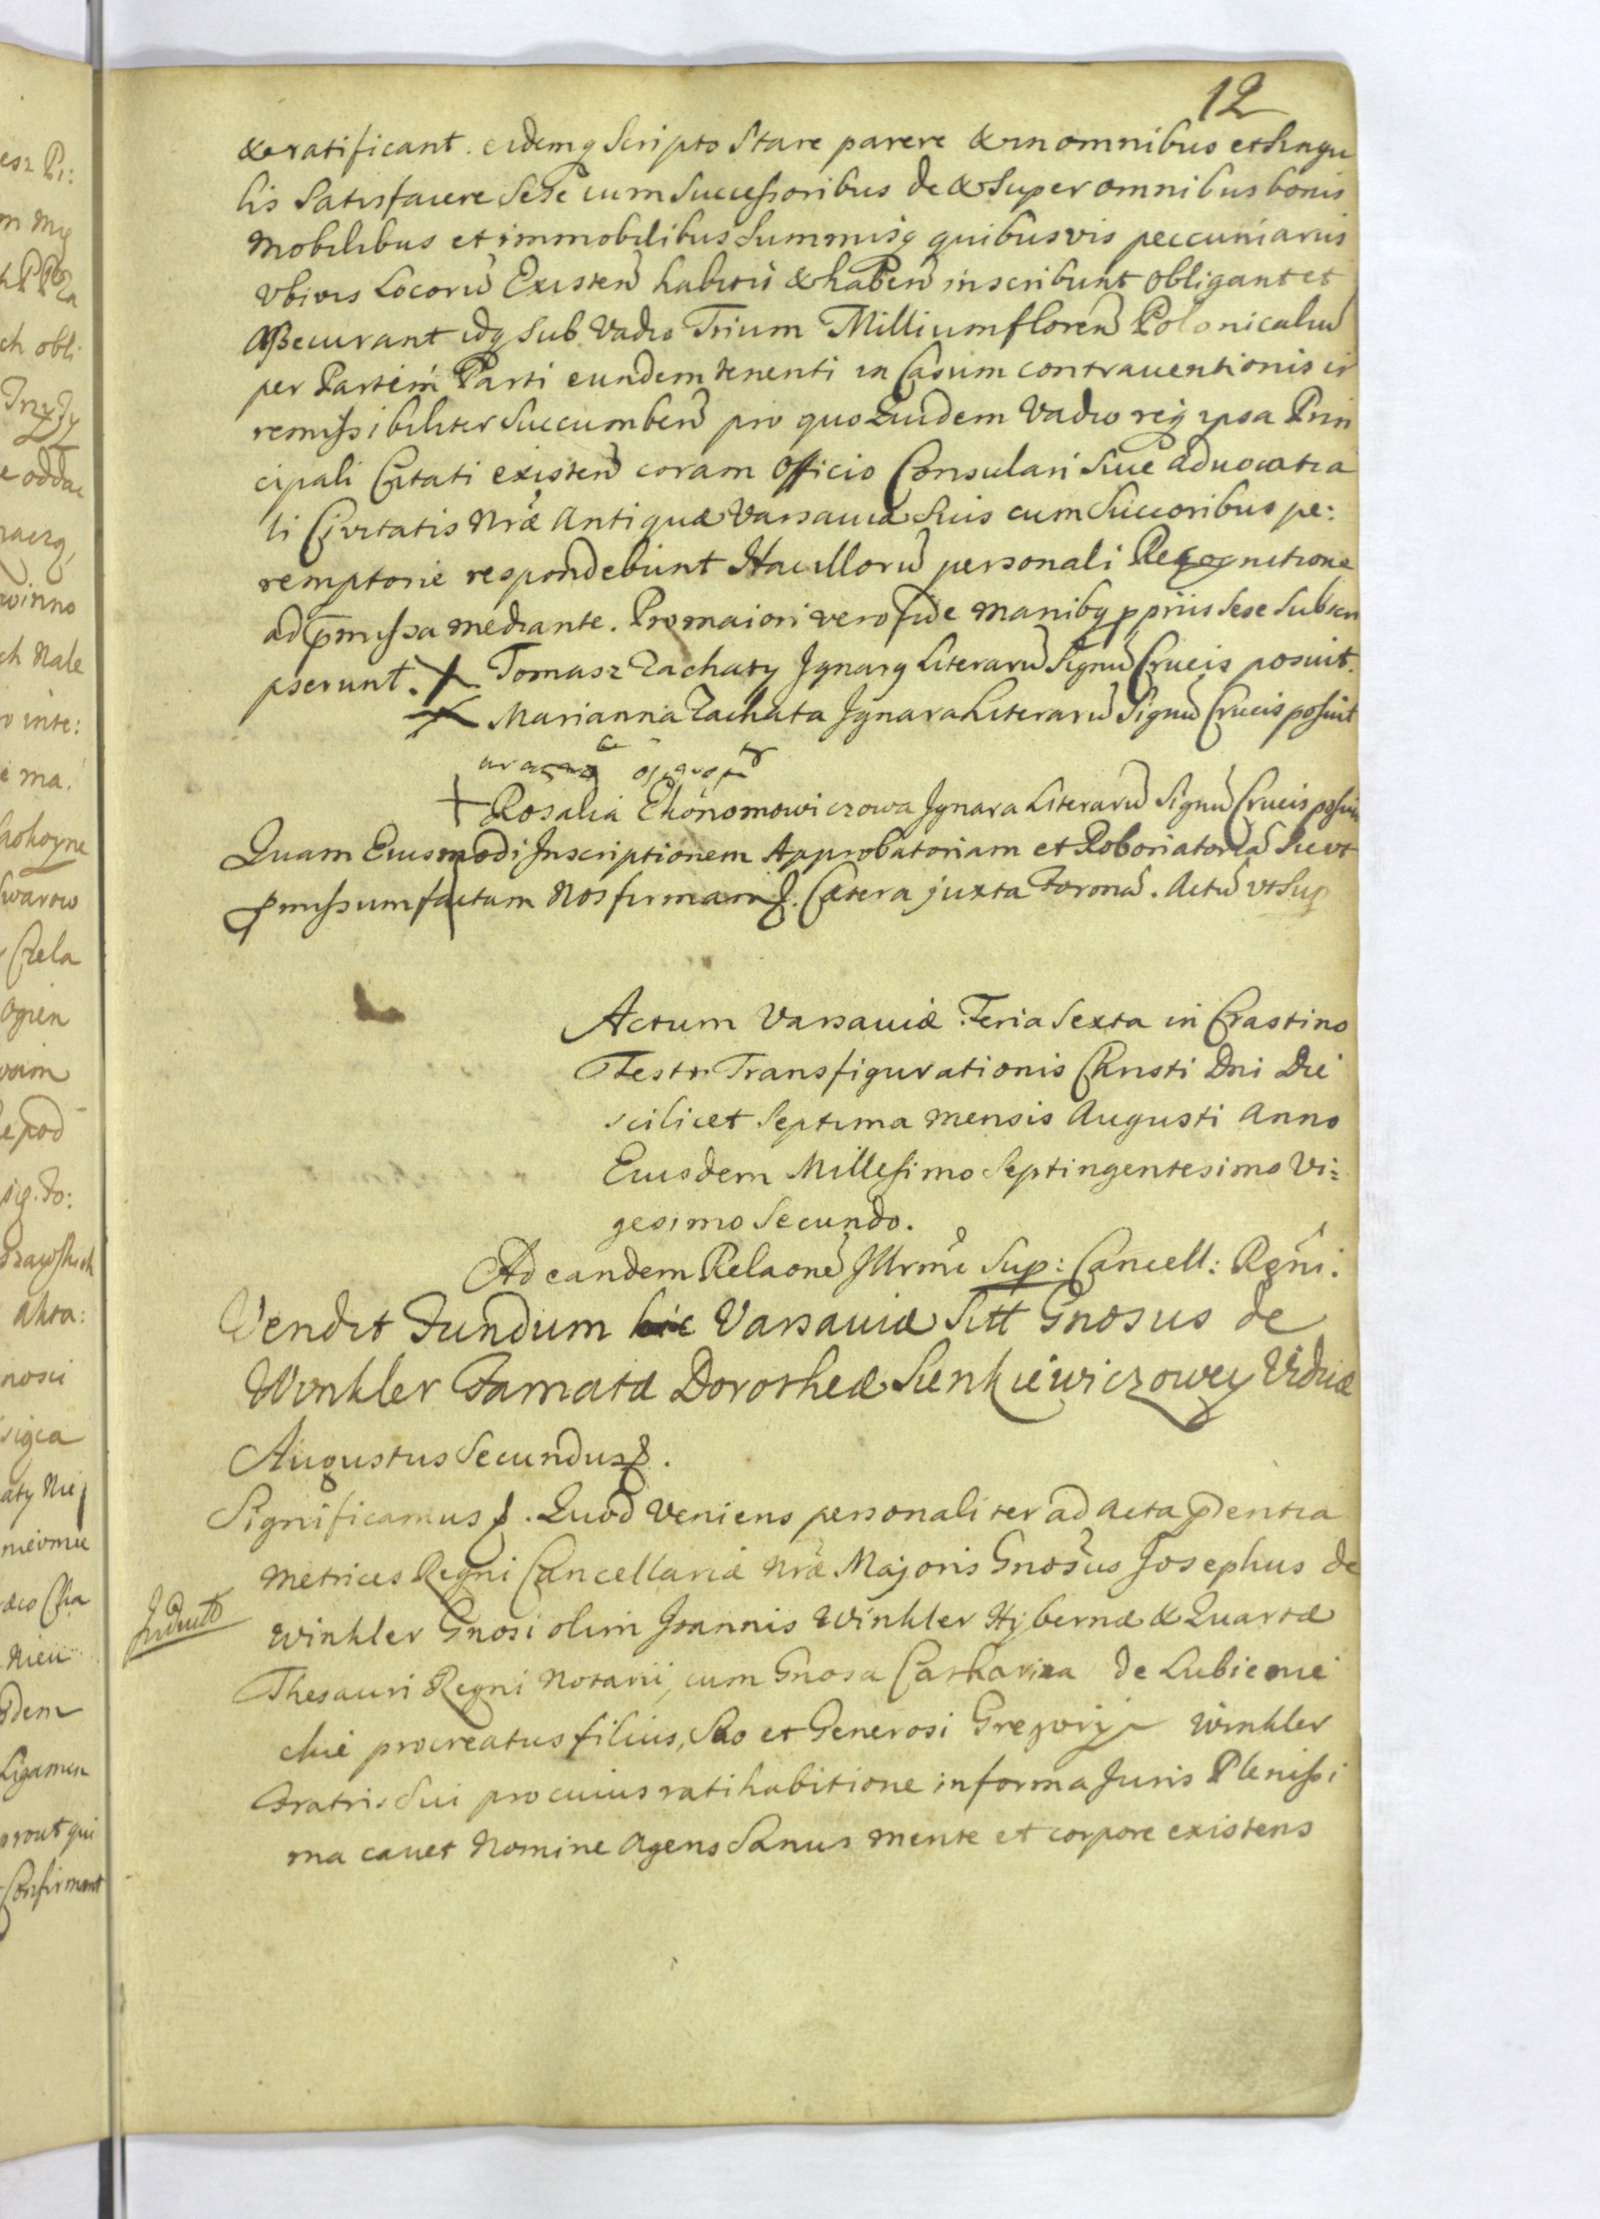 12
& ratificant. eidemq Scripto Stare parere & in omnibus et Singu
lis Satisfacere Sese cum Successoribus de & Super omnibus bonis
Mobilibus et immobilibus Summisq quibusvis peccuniariis
Vbivis Locorũ Existeñ habitis & habeñ inscribunt obligant et
Assecurant idq Sub Vadio Trium Millium floreñ Polonicaliũ
per Partem Parti eundem tenenti in Casum contrauentionis ir
remissibiliter Succumbeñ pro quo Quidem Vadio reiq ipsa Prin
cipali Citati existeñ coram Officio Consulari Siue aduocatia
li Civitatis Nræ Antiquæ Varsauiæ Suis cum Succoribus pe:
remptorie respondebunt Hac illorũ personali Recognitione
ad pmissa mediante. Pro maiori vero fide Manibq ppriis Sese Subscri
pserunt. X Tomasz Zachaty Jgnarq Literarũ Signũ Crucis posuit.
X Marianna Zachata Jgnara Literarũ Signũ Crucis posuit
+ Rosalia Ekonomowiczowa Jgnara Literarũ Signũ Crucis posui
Quam Eiusmodi Inscriptionem Approbatoriam et Roboriatoriã Sicut
pmissum factam Nos firmam. Cætera juxta Formã. Actũ vt Sup
Actum Varsauiæ Feria Sexta in Crastino
Festi Transfigurationis Christi Dni Die
scilicet Septima Mensis Augusti Anno
Eiusdem Millesimo Septingentesimo Vi=
gesimo Secundo.
Ad eandem Relaonẽ Jllrmi Sup: Cancell: Regni.
Vendit Fundum hic Varsauiæ Sitt Gnosus de
Winkler Famatæ Dorotheæ Sienkiewiczowey Viduæ
Augustus Secundus.
Significamus. Quod Veniens personaliter ad Acta pdentia
Metrices Regni Cancellariæ Nræ Majoris Gnosus Josephus de
Indult
Winkler Gnosi olim Joannis Winkler Hybernæ & Quartæ
Thesauri Regni Notarii, cum Gnosa Catharina de Lubienie
chie procreatus filius, Suo et Generosi Gregorii Winkler
Fratris Sui pro cuius ratihabitione in forma Juris Plenissi
ma cauet Nomine Agens Sanus mente et corpore existens